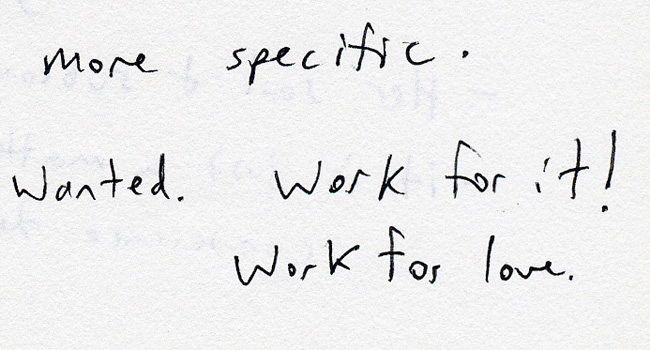 more specific.
Wanted. Work for it!
Work for love.